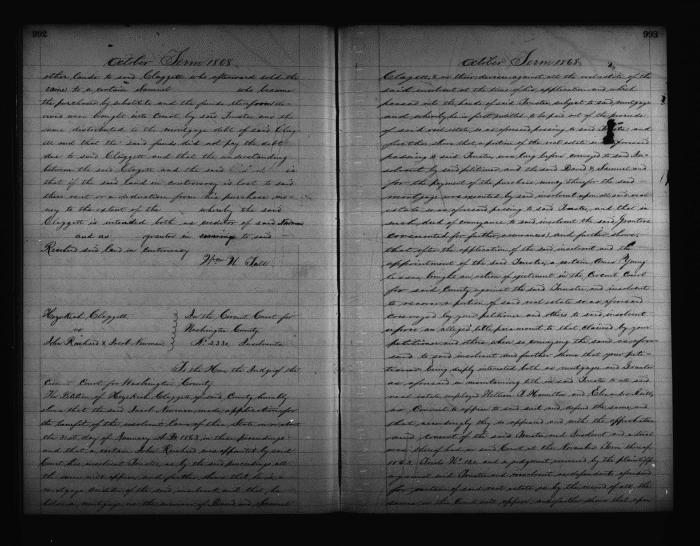 992
October Term 1868
other lands to said Claggett who afterward sold the
same to a certain Samuel who became
the purchaser by substitute and the funds therefrom de-
were brought into Court by said Trustee and the
same distributed to the mortgage debt of said Clag
ett and that the said funds did not pay the debt
due to said Claggett and that the understanding
between the said Claggett and the said is
that if the said land in controversy is lost to said
there rest or a deduction from his purchase mo-
ney to the extent of the whereby the said
Claggett is interested both as creditor of said Newman
and as grantor in to said
Reichard said land in controversy
Wm H. Fall
Hezekiah Claggett
vs
John Reichard & Jacob Newman
In the Circuit Court for
Washington County
No 2330 Insolvents
To the Hon. the Judge of the
Circuit Court for Washington County
The Petition of Hezekiah Claggett of said County humbly
shows that the said Jacob Newman made application for
the benefit of the insolvent laws of this State on or about
the day of January A.D. 1863, in these proceedings
and that a certain John Reichard was appointed by said
Court his insolvent Trustee, as by the said proceedings all
the same will appear and further shows that he is a
mortgage creditor of the said insolvent and that he
holds a mortgage as the assignee of David and Samuel
993
October Term 1868
Claggett & on their devisees against all the real estate of the
said insolvent at the time of his application and which
passed into the hands of said Trustee subject to said mortgage
and which he is first entitled to be paid out of the proceeds
of said real estate so as aforesaid passing to said Trustee and
further shows that a portion of the real estate so as aforesaid
passing to said Trustee, was long before conveyed to said In-
solvent by said petitioner and the said David & Samuel and
for the payment of the purchase money therefor the said
mortgage was executed by said insolvent upon all said real
estate so as aforesaid passing to said Trustee, and that in
such deed of conveyance to said insolvent the said Grantors
covenanted for further assurances, and further shows
that after the application of the said insolvent and the
appointment of the said Trustee, a certain Young
brought an action of ejectment in the Circuit Court
for said County against the said Trustee and insolvent
to recover a portion of said real estate so as aforesaid
conveyed by your petitioner and others to said insolvent
upon an alleged title paramount to that claimed by your
petitioner and others when so conveying the same as afore-
said to said insolvent and further shows that your peti-
tioner being deeply interested both as mortgagee and Grantor
as aforesaid in maintaining title in said Trustee to all said
real estate employed William T. Hamilton and
as Counsel to appear to said suit and defend the same, and
that accordingly they so appeared and with the approbation
and consent of the said Trustee and Insolvent and a trial
was thereof had in said Court at the November Term thereof
186 Trials No and a judgment recovered by the plaintiff
against said Trustee and insolvent as defendants aforesaid
for portion of said real estate as by the record of all the
same in the Court will appear and further shows that upon